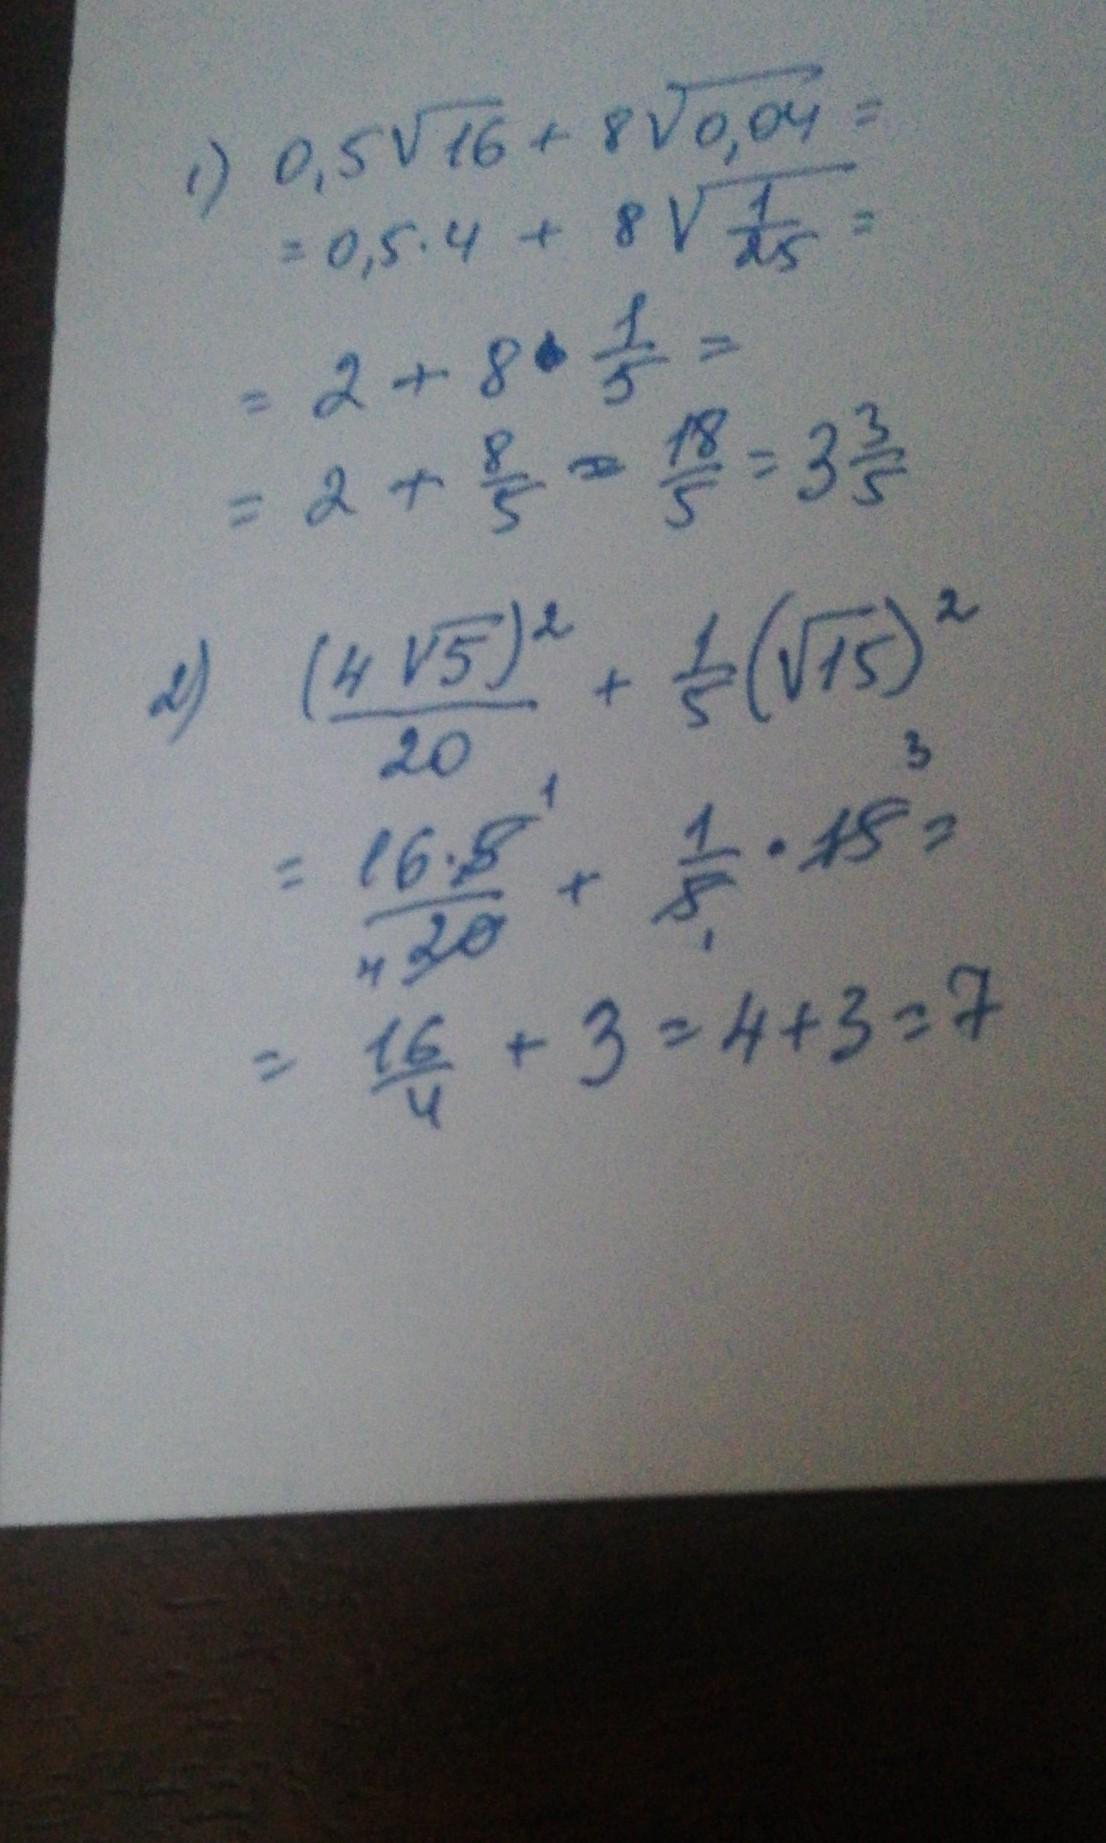 1) 0,5√16 + 8√0,04 =
= 0,5·4 + 8√1/25 =
= 2 + 8 · 1/5 =
= 2 + 8/5 = 18/5 = 3 3/5
2) (4√5)²/20 + 1/5(√15)²
= 16·5/20 + 1/5 · 15 =
= 16/4 + 3 = 4+3 = 7